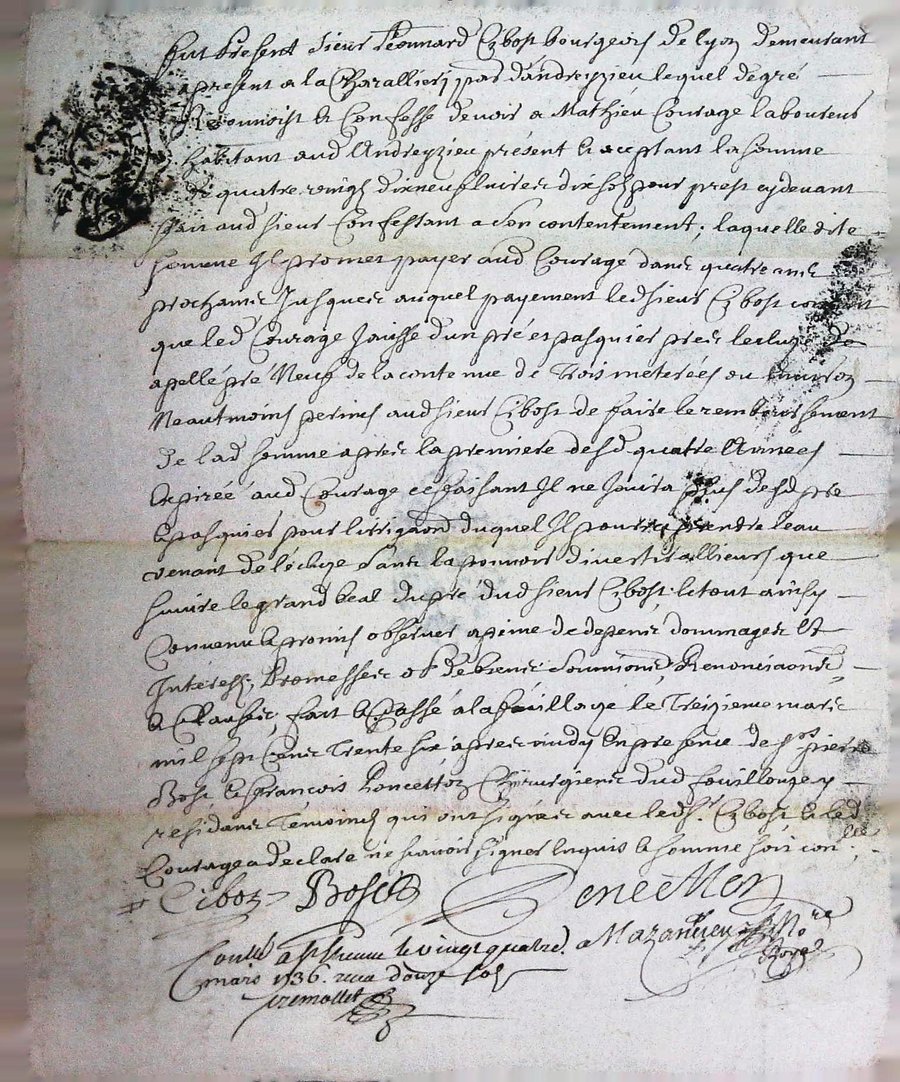 fut Present Sieur Léonnard Cibost bourgeois de lyon demeurant
apresent a la Charalliery par dandreyzieu lequel de gré
Reconnoist & Confesse devoir a Mathieu Courage laboureur
habitant aud Andreyzieu présent & acceptant la somme
de quatre vingt dixneuf livres dix sols pour prest cydevant
fait aud sieur Confessant a son contentement; laquelle dite
somme Il promet payer aud Courage dans quatre ans
prochains Jusques auquel payement led sieur Cibost consent
que led Courage Jouisse d'un pré et pasquier pres lecluze de
apellé pré Neuf de la contenue de Trois méterées ou environ
Neautmoins permis aud sieur Cibost de faire le remboursement
de lad somme apres la premiere desd quatre Années
Expirée aud Courage ce faisant Il ne Jouira plus desd pré
& pasquier pour lirrigaon duquel Il pourra prendre leau
venant de l'écluze sans la pouvoir divertir allieurs que
suivre le grand beal du pré dud sieur Cibost; le tout ainsy
Convenu & promis observer a peine de depens dommages &
Intérests, Promesses ob de biens Soumions, Renonciaons,
& Clauses, fait & Passé à la fouillage le Treizieme mars
mil sept Cens Trente six apres midy En presence de sr pierre
Bost & francois Poncetton Chirurgiens dud fouillouze y
résidans Témoins qui ont signés avec led sr. Cibost & led
Courage a declaré ne scavoir signer Enquis & sommé soit con lle
Cibost Bost
Conllé a St Etienne le vingt quatre
mars 1736. recu douze sols
Mazancieu
No re
Royal